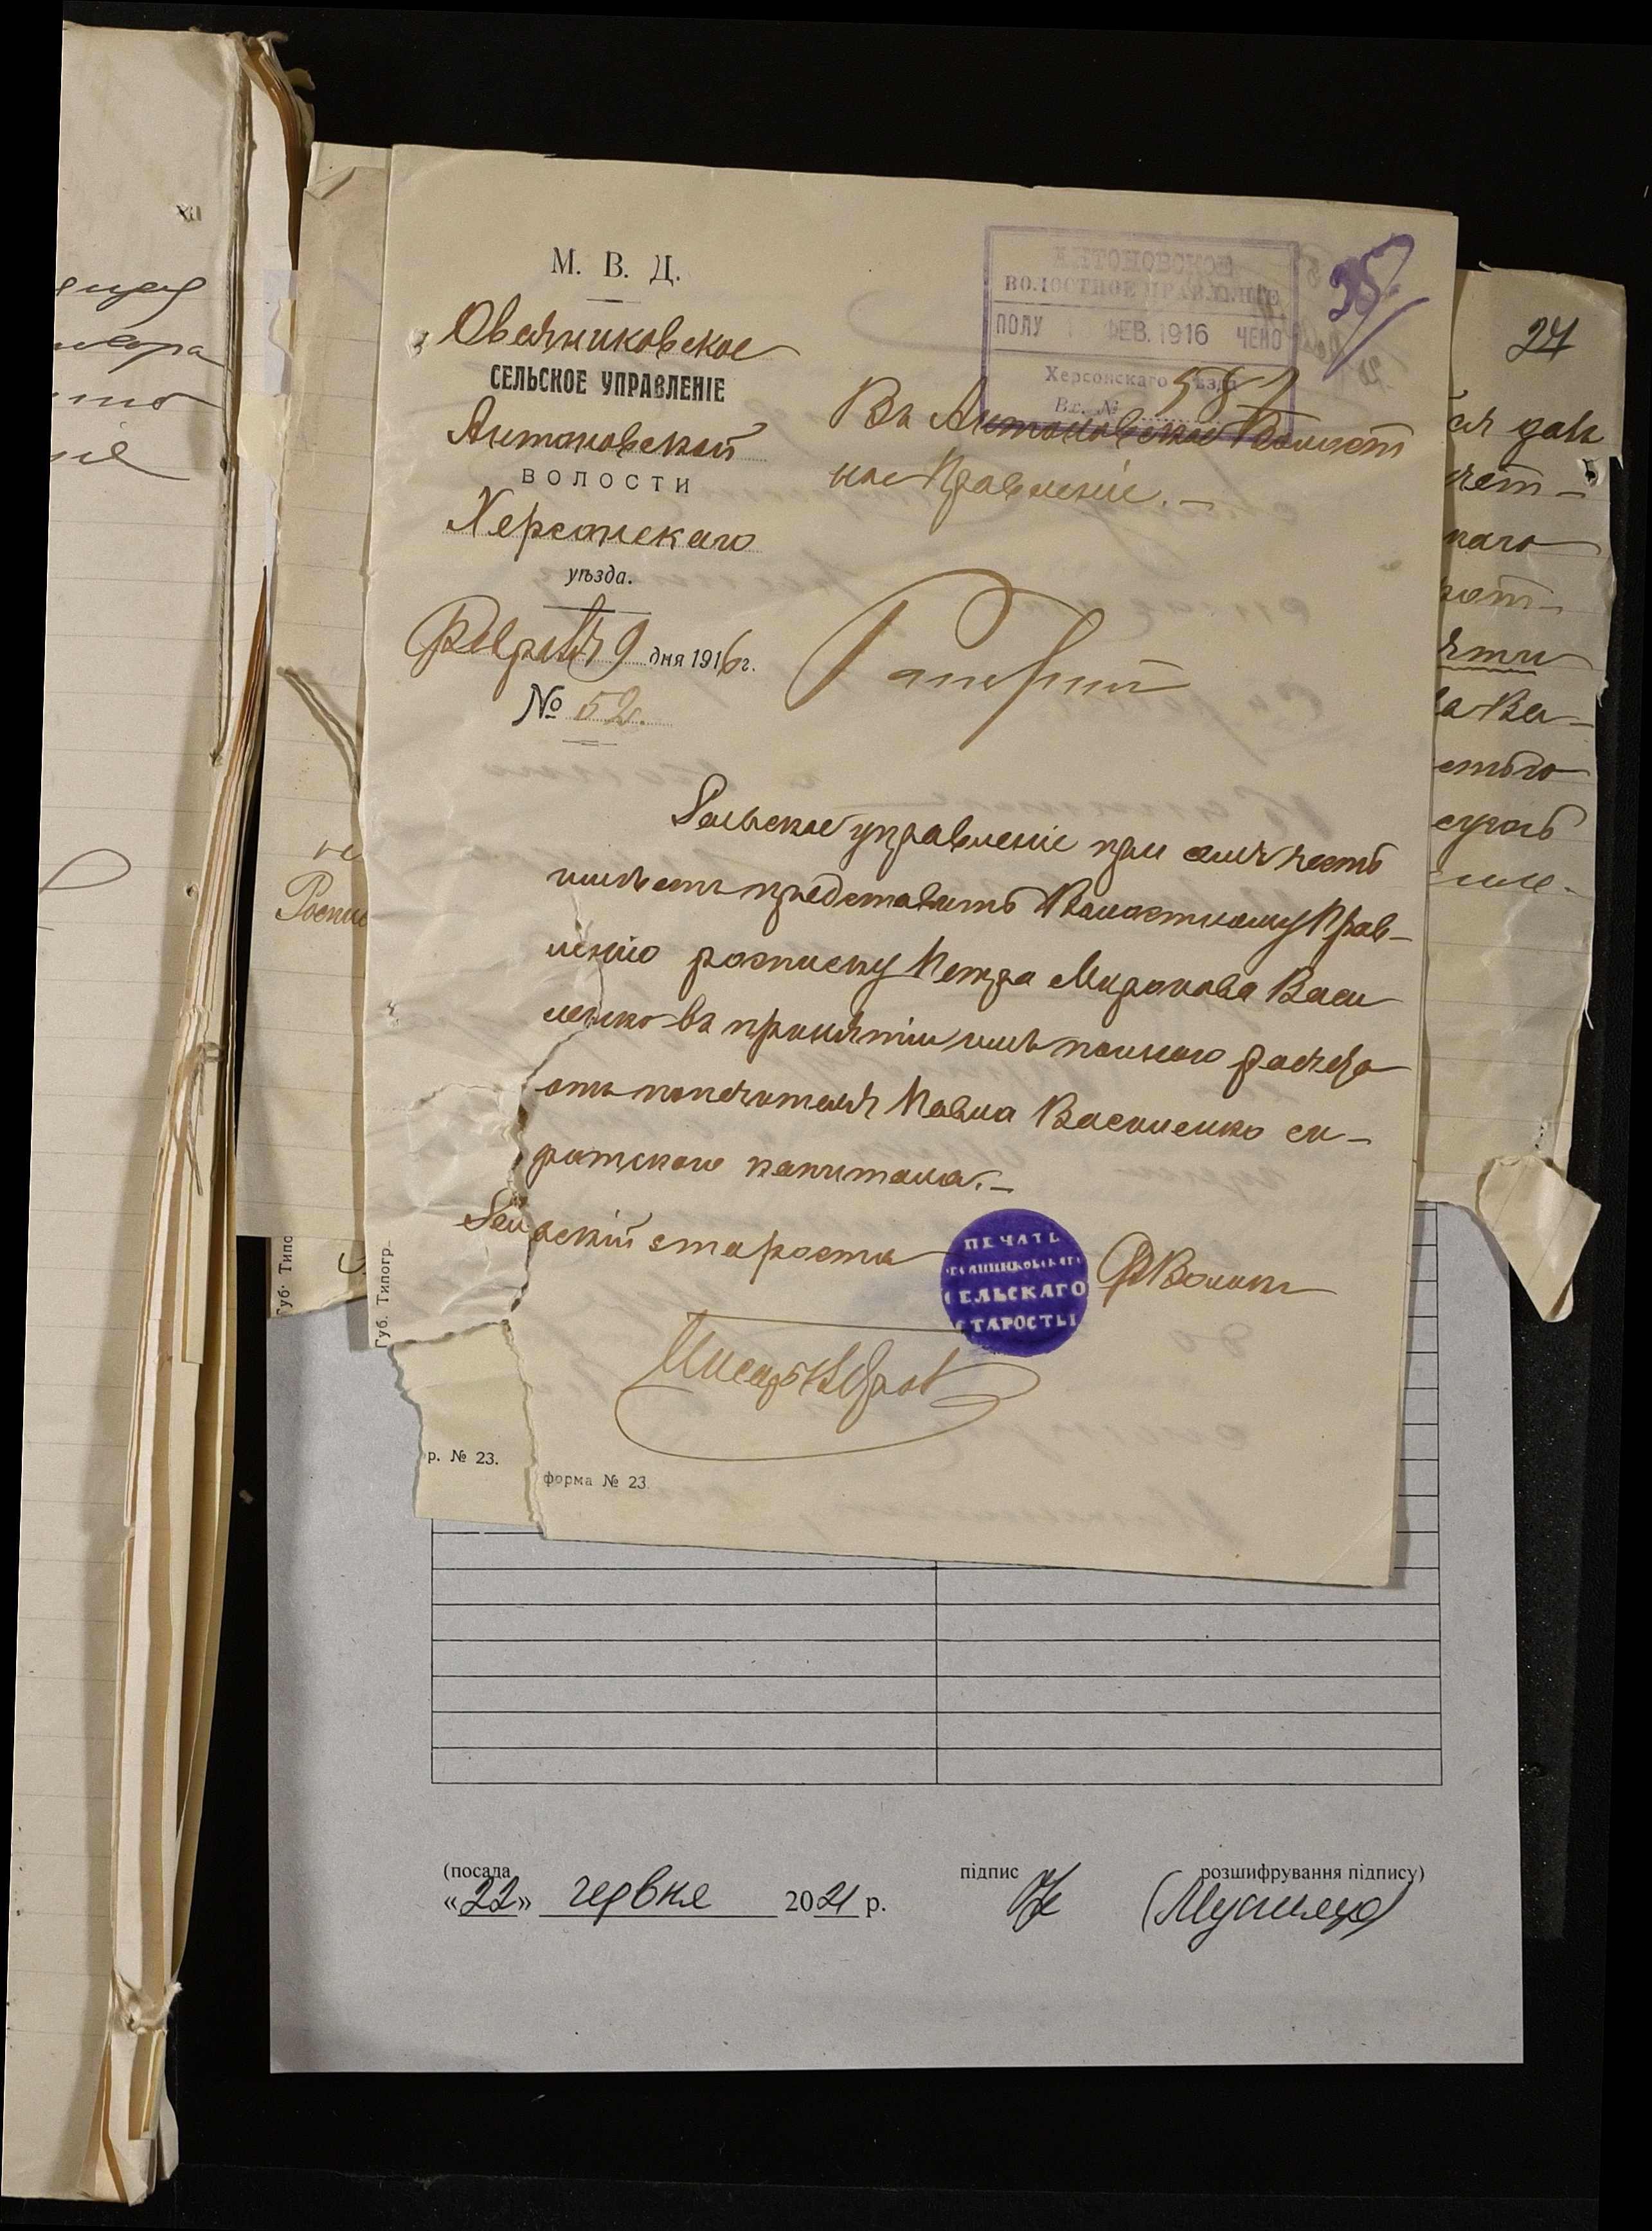 М. В. Д.
Овсяниковское
СЕЛЬСКОЕ УПРАВЛЕНІЕ
Антоновской
ВОЛОСТИ
Херсонскаго
уѣзда.
Февраля 9 дня 1916 г.
№ 52.
АНТОНОВСКОЕ
ВОЛОСТНОЕ ПРАВЛЕНІЕ
ПОЛУ 1 ФЕВ. 1916 ЧЕНО
Херсонскаго уѣзда
Вх. № 587
35
24
Въ Антоновское Волост
ное Правленіе. —
Рапортъ
Сельское управленіе при семъ честь
имѣетъ представить Волостному Прав-
ленію росписку Петра Миронова Васи
ленко въ принятіи имъ полного расчета
отъ попечителя Павла Василенко си-
ротского капитала. —
Сельскій староста
ПЕЧАТЬ
ОВСЯННИКОВСКАГО
СЕЛЬСКАГО
СТАРОСТЫ
Писарь
Губ. Типогр.
Губ. Типо
р. № 23.
форма № 23
Роспис
(посада
підпис
розшифрування підпису)
«22» червня 2021 р.